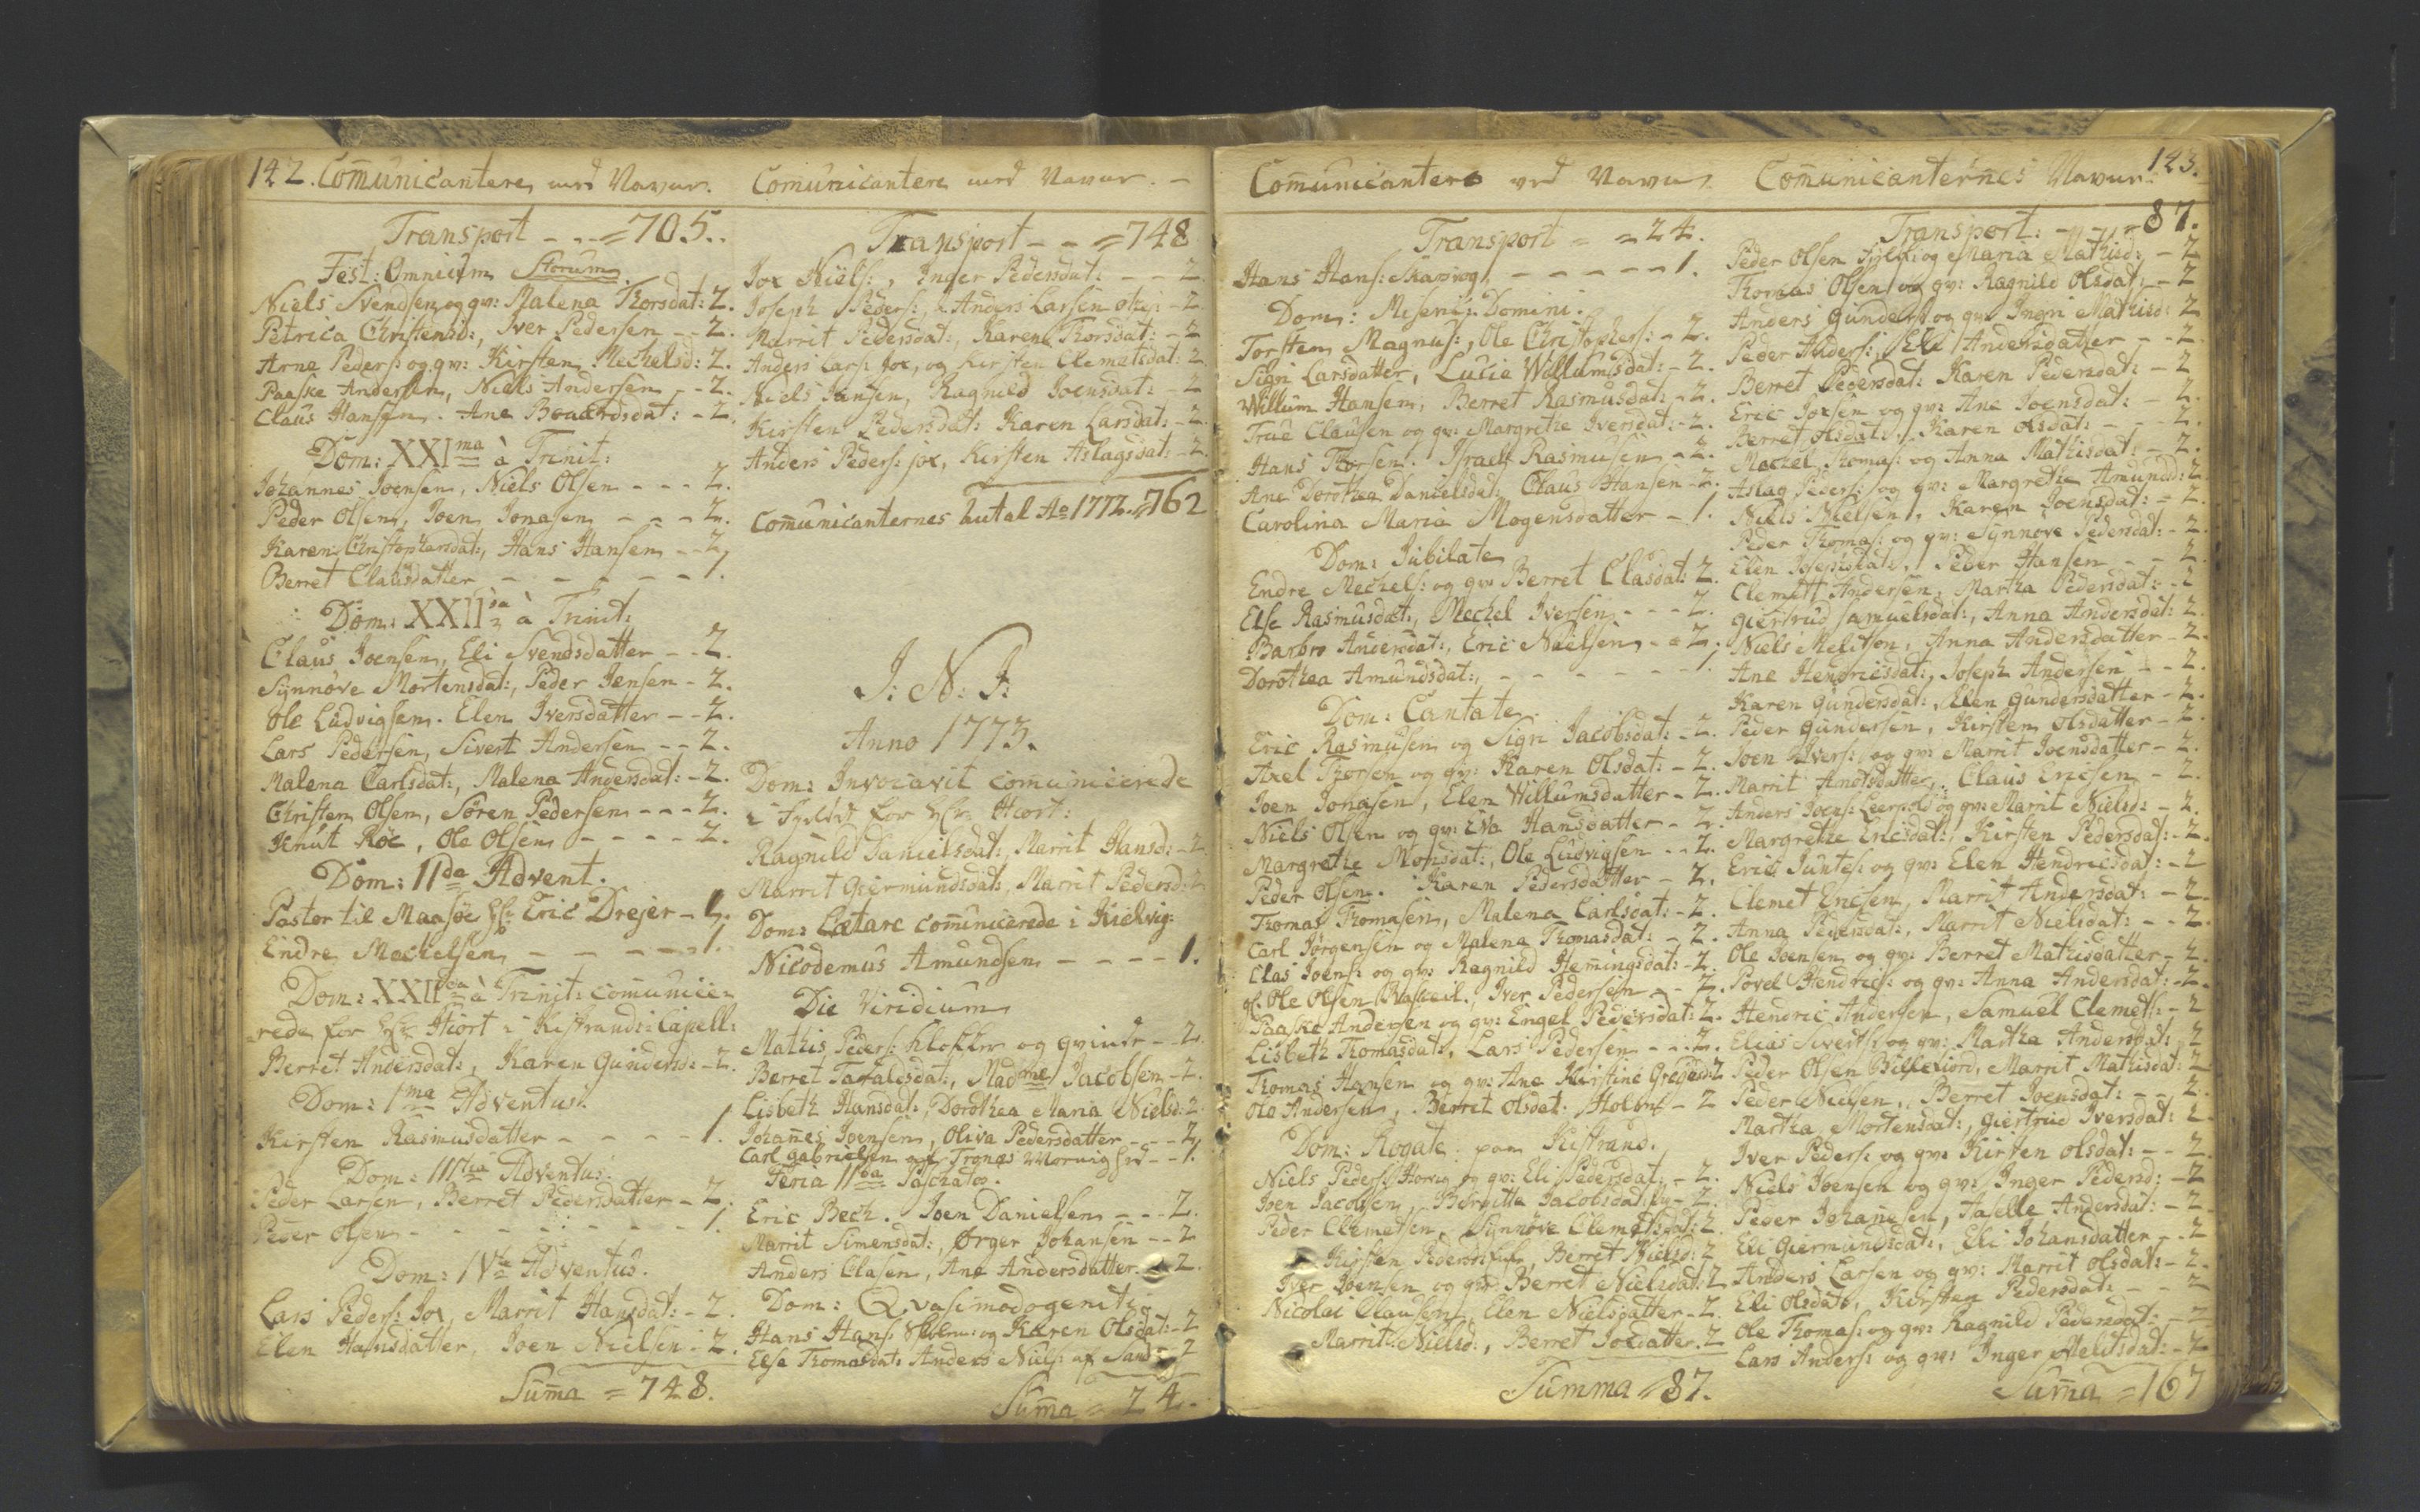 142. Com̅unicantere, med Navne.
Transport - - = 705.
Fest: Omnium Storum.
Niels Svendsen og qv: Malena Thorsdat: 2.
Petrica Christensd:, Iver Pedersen - - 2.
Arne Peders: og qv: Kirsten Mechelsd: 2.
Paaske Andersen, Niels Andersen - - 2.
Claus Hansen. Ane Bouardsdat: - 2.
Dom: XXIma à Trinit:
Johannes Joensen, Niels Olsen - - - 2.
Peder Olsen, Joen Jonasen - - - 2.
Karen Christophersdat:, Hans Hansen - - 2.
Berret Clausdatter - - - - - 1.
Dom: XXIIda à Trinit:
Claus Joensen, Eli Svendsdatter - - 2.
Synnöve Mortensdat:, Peder Jensen - 2.
Ole Ludvigsen. Elen Iversdatter - - 2.
Lars Pedersen, Sivert Andersen - - 2.
Malena Carlsdat:, Malena Andersdat: - 2.
Christen Olsen, Sören Pedersen - - - 2.
Knut Röe, Ole Olsen - - - - 2.
Dom: IIda Advent.
Pastor til Maasöe Hr: Eric Drejer - 1.
Endre Mechelsen - - - - - 1.
Dom: XXIIda à Trinit: com̅unice-
rede for Hr: Hiort i Kistrands Capell:
Berret Andersdat:, Karen Gundersd: - 2.
Dom: 1ma Adventus.
Kirsten Rasmusdatter - - - - 1.
Dom: IIItia Adventus.
Peder Larsen, Berret Pedersdatter - 2.
Peder Olsen - - - - - - - 1.
Dom: IVta Adventus.
Lars Peders: Jox, Marrit Hansdat: - 2.
Elen Hansdatter, Joen Nielsen - 2.
Sum̅a = 748.
Com̅unicantere med Navne. -
Transport - - = 748
Jox Niels:, Inger Pedersdat: - - 2
Joseph Peders:, Anders Larsen - 2.
Marrit Pedersdat:, Karen Thorsdat: - 2
Anders Lars: Jox, og Kirsten Clemetsdat: 2
Niels Jensen, Ragnild Joensdat: - 2
Kirsten Pedersdat: Karen Larsdat: - 2.
Anders Peders: jox, Kirsten Aslagsdat: - 2.
Com̅unicanternes Antal Ao 1772. = 762
J: N: J:
Anno 1773.
Dom: Invocavit com̅unicerede
i for Hr: Hiort:
Ragnild Danielsdat:, Marrit Hansd: - 2
Marrit Giermundsdat:, Marrit Pedersd: 2.
Dom: Lætare com̅unicerede i Kielvig:
Nicodemus Amundsen - - - - 1.
Die Viridium
Mathis Peders: Klokker og qvinde - - 2
Berret Tafalesdat:, Madme Jacobsen - 2.
Lisbeth Hansdat:, Dorothea Maria Nielsd: 2.
Johan̅es Joensen, Oliva Pedersdatter - - - 2
Carl Gabrielsen af Tronæs - - 1.
Feria IIda Paschatos.
Eric Bech. Joen Danielsen - - - 2.
Marrit Simensdat:, Örger Johansen - - 2
Anders Clasen, Ane Andersdatter - 2.
Dom: Qvasimodogeniti.
Hans Hans: og Karen Olsdat: - 2
Else Thomasdat: Anders Niels: af Sand - 2
Sum̅a = 24.
Com̅unicantere ved Navn
Transport = = 24.
Hans Hans: - - - - - - 1.
Dom: Miseric. Domini.
Torsten Magnus:, Ole Christophers: - 2.
Sigri Larsdatter, Lucie Willumsdat: - 2.
Willum Hansen, Berret Rasmusdat: - 2.
True Clausen og qv: Margrethe Iversdat: - 2.
Hans Thorsen. Israel Rasmusen - 2.
Ane Dorothea Danielsdat: Claus Hansen - 2.
Carolina Maria Mogensdatter - 1.
Dom: Jubilate
Endre Mechels: og qv: Berret Clasdat: 2.
Else Rasmusdat:, Mechel Iversen - - - 2.
Barbro Andersdat:, Eric Nielsen - - 2.
Dorothea Amundsdat: - - - - - 1.
Dom: Cantate.
Eric Rasmusen og Sigri Jacobsdat: - 2.
Axel Thorsen og qv: Karen Olsdat: - 2.
Joen Jonasen, Elen Willumsdatter - 2.
Niels Olsen og qv: Eva Hansdatter - 2.
Margrethe Monsdat:, Ole Ludvigsen - - 2.
Peder Olsen. Karen Pedersdatter - 2.
Thomas Thomasen, Malena Carlsdat: - 2.
Carl Jörgensen og Malena Thomasdat: - 2.
Clas Joens: og qv: Ragnild Hem̅ingsdat: - 2.
Ole Olsen, Iver Pedersen - - 2.
Paaske Andersen og qv: Engel Pedersdat: 2.
Lisbeth Thomasdat:, Lars Pedersen - - - 2.
Thomas Hansen og qv: Ane Kirstine Gregersd: 2
Ole Andersen, Berrit Olsdat: - 2
Dom: Rogate paa Kistrand.
Niels Peders: og qv: Eli Pedersdat: - 2.
Joen Jacobsen, Birgitta Jacobsdat: - 2.
Peder Clemetsen, Synnöve Clemetsdat: 2.
Kirsten, Berret Nielsd: 2
Iver Joensen og qv: Berret Nielsdat: 2
Nicolai Clausen, Elen Nielsdatter - 2
Marrit Nielsd:, Berret Joxdatter. 2
Summa = 87.
Com̅unicanternes Navne. 143.
Transport: - - = 87.
Peder Olsen og Maria Mathisd: - 2
Thomas Olsen og qv: Ragnild Olsdat: - 2
Anders Gunders: og qv: Ingri Mathisd: 2
Peder Anders:, Eli Andersdatter - - 2.
Berret Pedersdat: Karen Pedersdat: - 2
Eric Joxsen og qv: Ane Joensdat: - 2.
Berret Olsdat:, Karen Olsdat: - - - 2.
Mechel Thomas: og Anna Mathisdat: - 2.
Aslag Peders: og qv: Margrethe Amundsd: 2
Niels Nielsen, Karen Joensdat: - 2.
Peder Thomas: og qv: Synnöve Pedersdat: - 2.
Elen Josephsdat:, Peder Hansen - - 2.
Clemet Andersen, Martha Pedersdat: - 2
Giertrud Samuelsdat:, Anna Andersdat: 2.
Niels Melitsen, Anna Andersdatter - 2.
Ane Hendricsdat:, Joseph Andersen - - 2.
Karen Gundersdat:, Elen Gundersdatter - 2.
Peder Gundersen, Kirsten Olsdatter - 2.
Joen Ivers: og qv: Marrit Joensdatter - 2.
Marrit Andersdatter, Claus Ericsen - 2.
Anders Joens: Leerpold og qv: Marrit Nielsd: - 2.
Margrethe Ericsdat:, Kirsten Pedersdat: - 2.
Eric Juntes: og qv: Elen Hendricsdat: - 2
Clemet Ericsen, Marrit Andersdat: - 2.
Anna Pedersdat:, Marrit Nielsdat: - - 2.
Ole Joensen og qv: Berret Mathisdatter - 2.
Povel Hendrics: og qv: Anna Andersdat: - 2.
Hendric Andersen, Samuel Clemets: - 2
Elias Siverts: og qv: Martha Andersdat: 2
Peder Olsen Billefiord, Marrit Mathisdat: 2
Peder Nielsen, Berret Joensdat: - - 2.
Martha Mortensdat:, Giertrud Iversdat: 2
Iver Peders: og qv: Kirsten Olsdat: - - 2.
Niels Joensen og qv: Inger Pedersd: - 2
Peder Johan̅esen, Taselle Andersdat: - 2
Eli Giermundsdat:, Eli Johansdatter - - 2
Anders Larsen og qv: Marrit Olsdat: - 2.
Eli Olsdat:, Kirsten Pedersdat: - - 2
Ole Thomas: og qv: Ragnild Pedersdat: - 2
Lars Anders: og qv: Inger Melitsdat: - 2
Sum̅a = 167